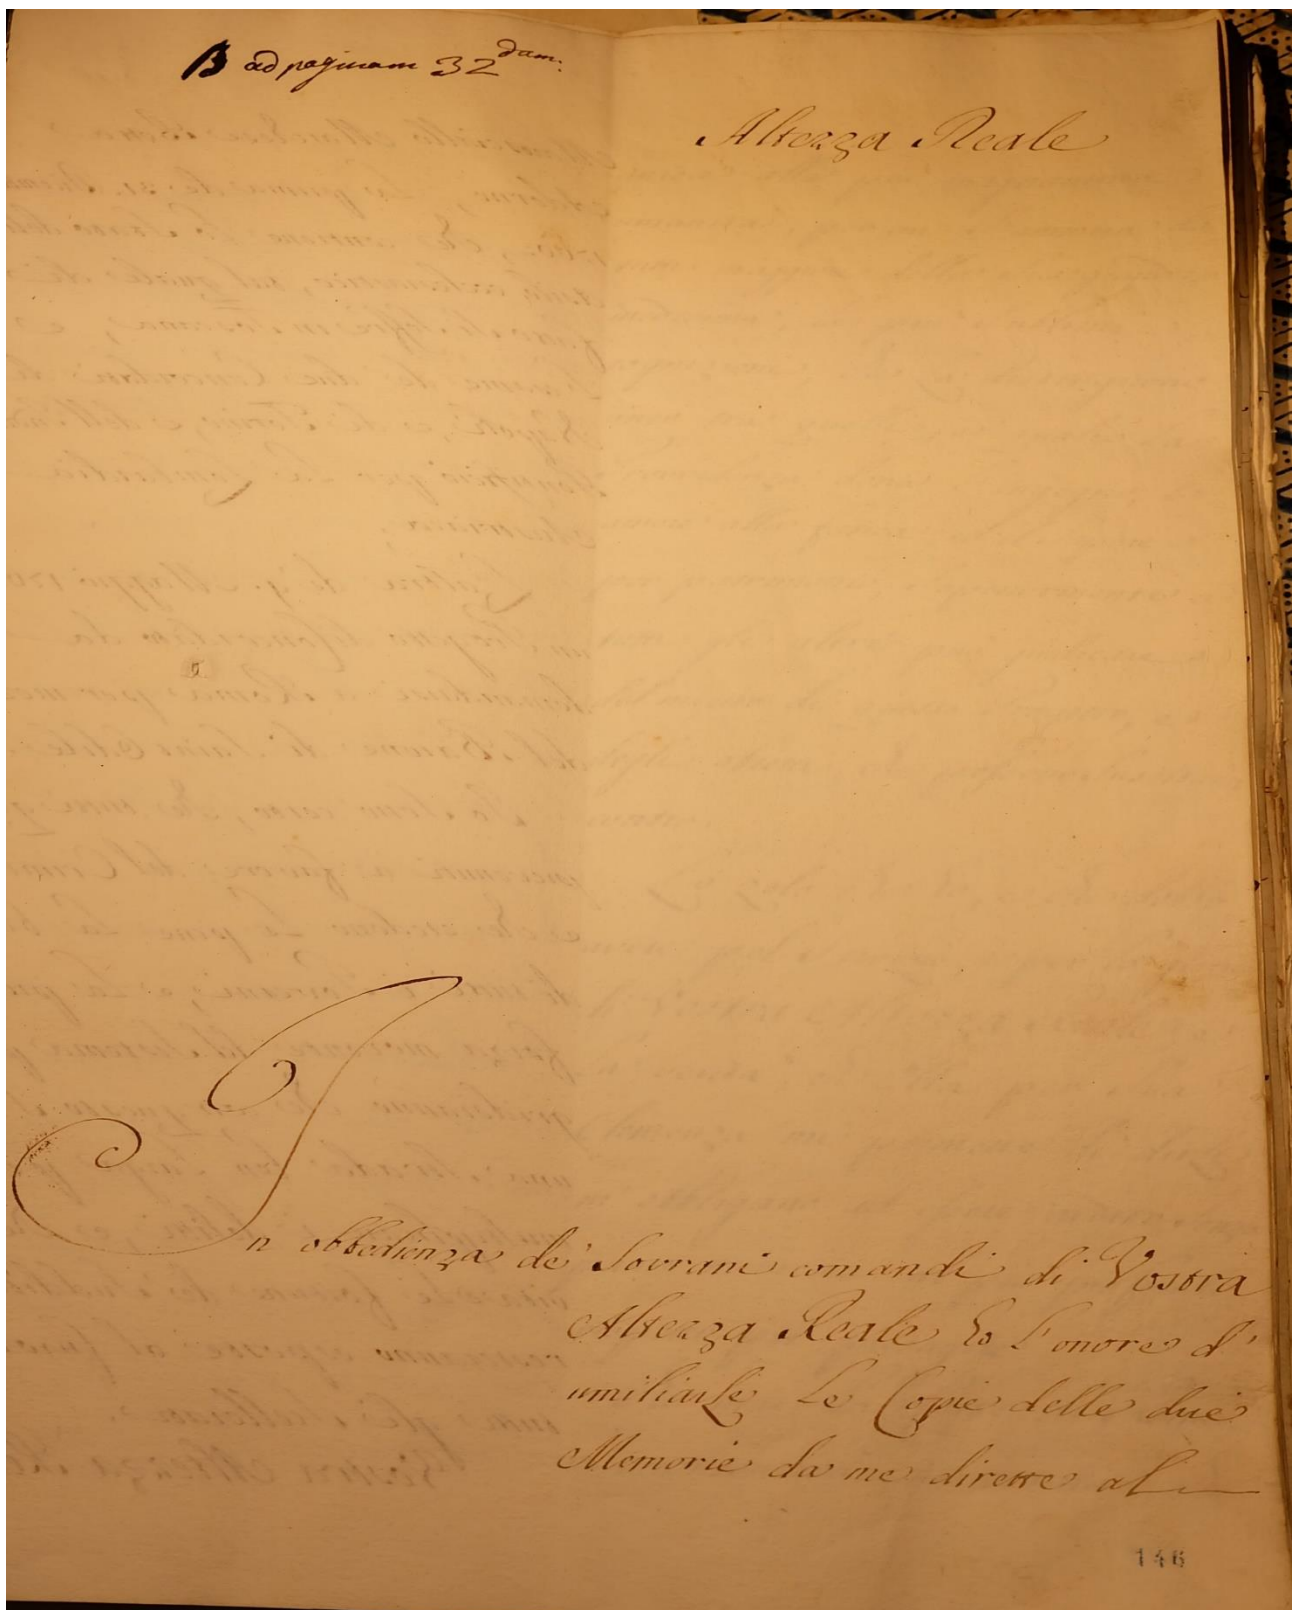 B ad paginam 32dam:
Altezza Reale
In obbedienza de' Sovrani comandi di Vostra
Altezza Reale ho l'onore d'
umiliarle le Copie delle due
Memorie da me dirette al
146